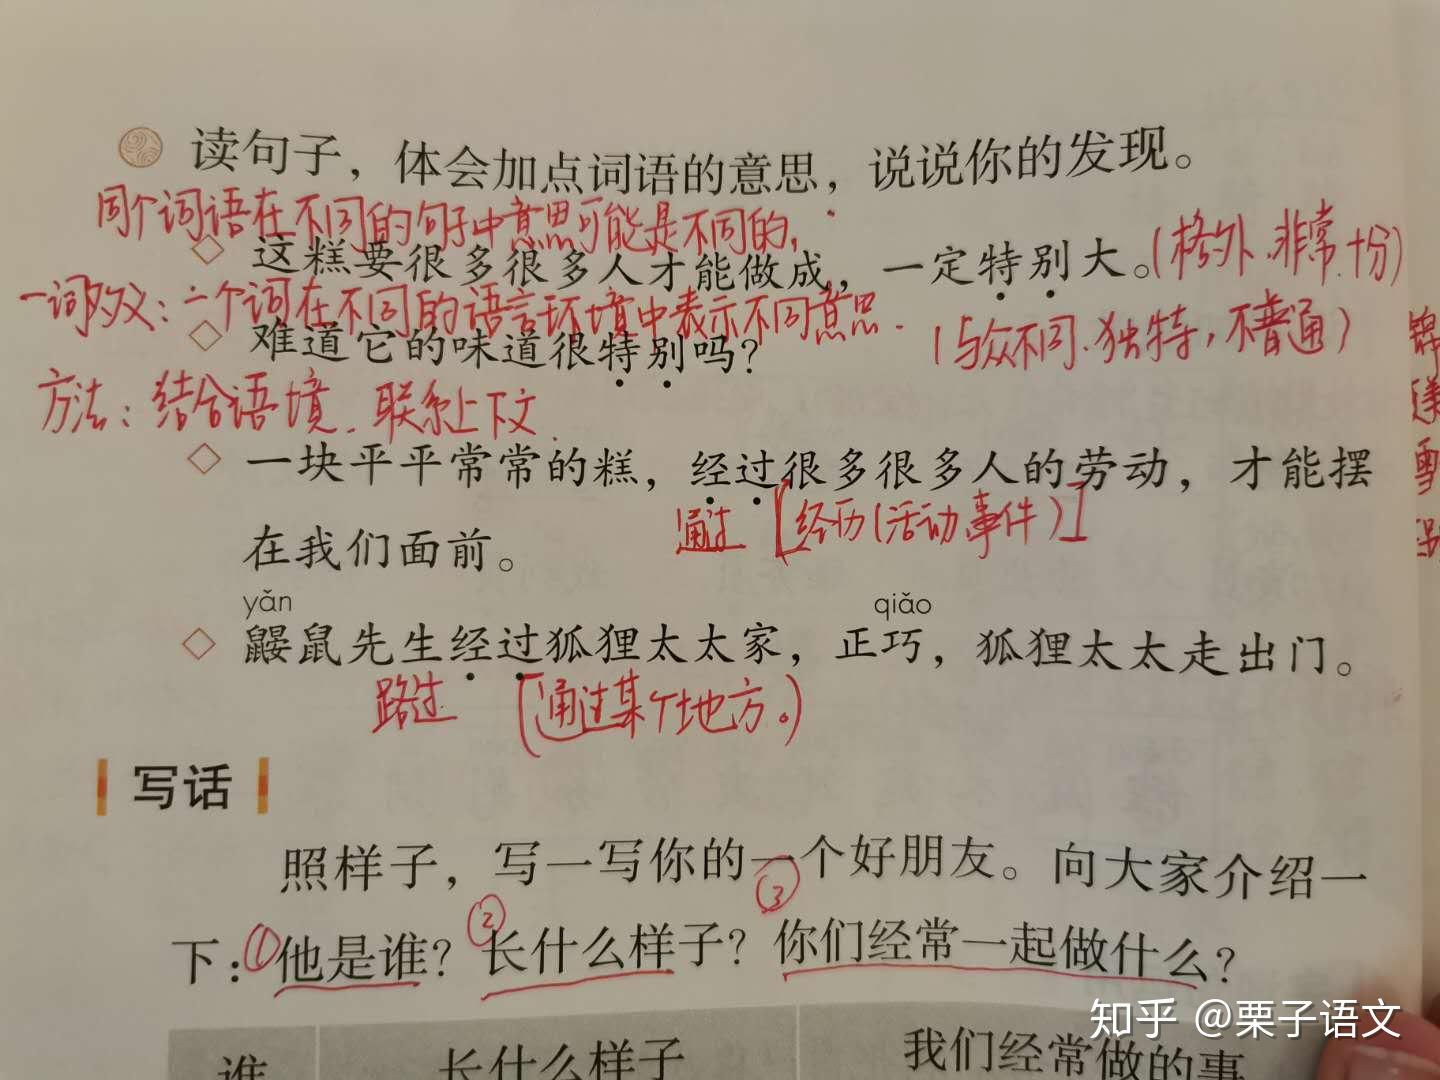 读句子，体会加点词语的意思，说说你的发现。
同个词语在不同的句子中意思可能是不同的，
这糕要很多很多人才能做成，一定特别大。(格外、非常、十分)
一词多义：一个词在不同的语言环境中表示不同意思.
难道它的味道很特别吗？(与众不同、独特，不普通)
方法：结合语境.联系上下文.
一块平平常常的糕，经过很多很多人的劳动，才能摆
通过 [经历(活动事件)]
在我们面前。
yǎn qiǎo
鼹鼠先生经过狐狸太太家，正巧，狐狸太太走出门。
路过 (通过某个地方。)
写话
照样子，写一写你的一个好朋友。向大家介绍一
下：①他是谁？②长什么样子？③你们经常一起做什么？
谁 长什么样子 我们经常做的事
知乎 @栗子语文